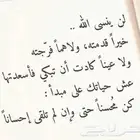 لن ينسى الله ..
خيراً قدمته، ولا هماً فرّجته
ولا عيناً كادت أن تبكي فأسعدتها
عش حياتك على مبدأ :
كن محسناً حتى وإن لم تلقى إحساناً